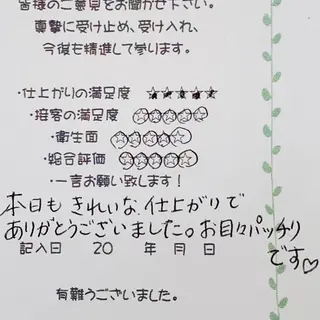 皆様のご意見をお聞かせ下さい。
真摯に受け止め、受け入れ、
今後も精進して参ります。
・仕上がりの満足度 ★★★★★
・接客の満足度 ☆☆☆☆☆
・衛生面 ☆☆☆☆☆
・総合評価 ☆☆☆☆☆
・一言お願い致します！
本日も きれいな 仕上がりで
ありがとうございました。お目々パッチリ
です♡
記入日 20 年 月 日
有難うございました。